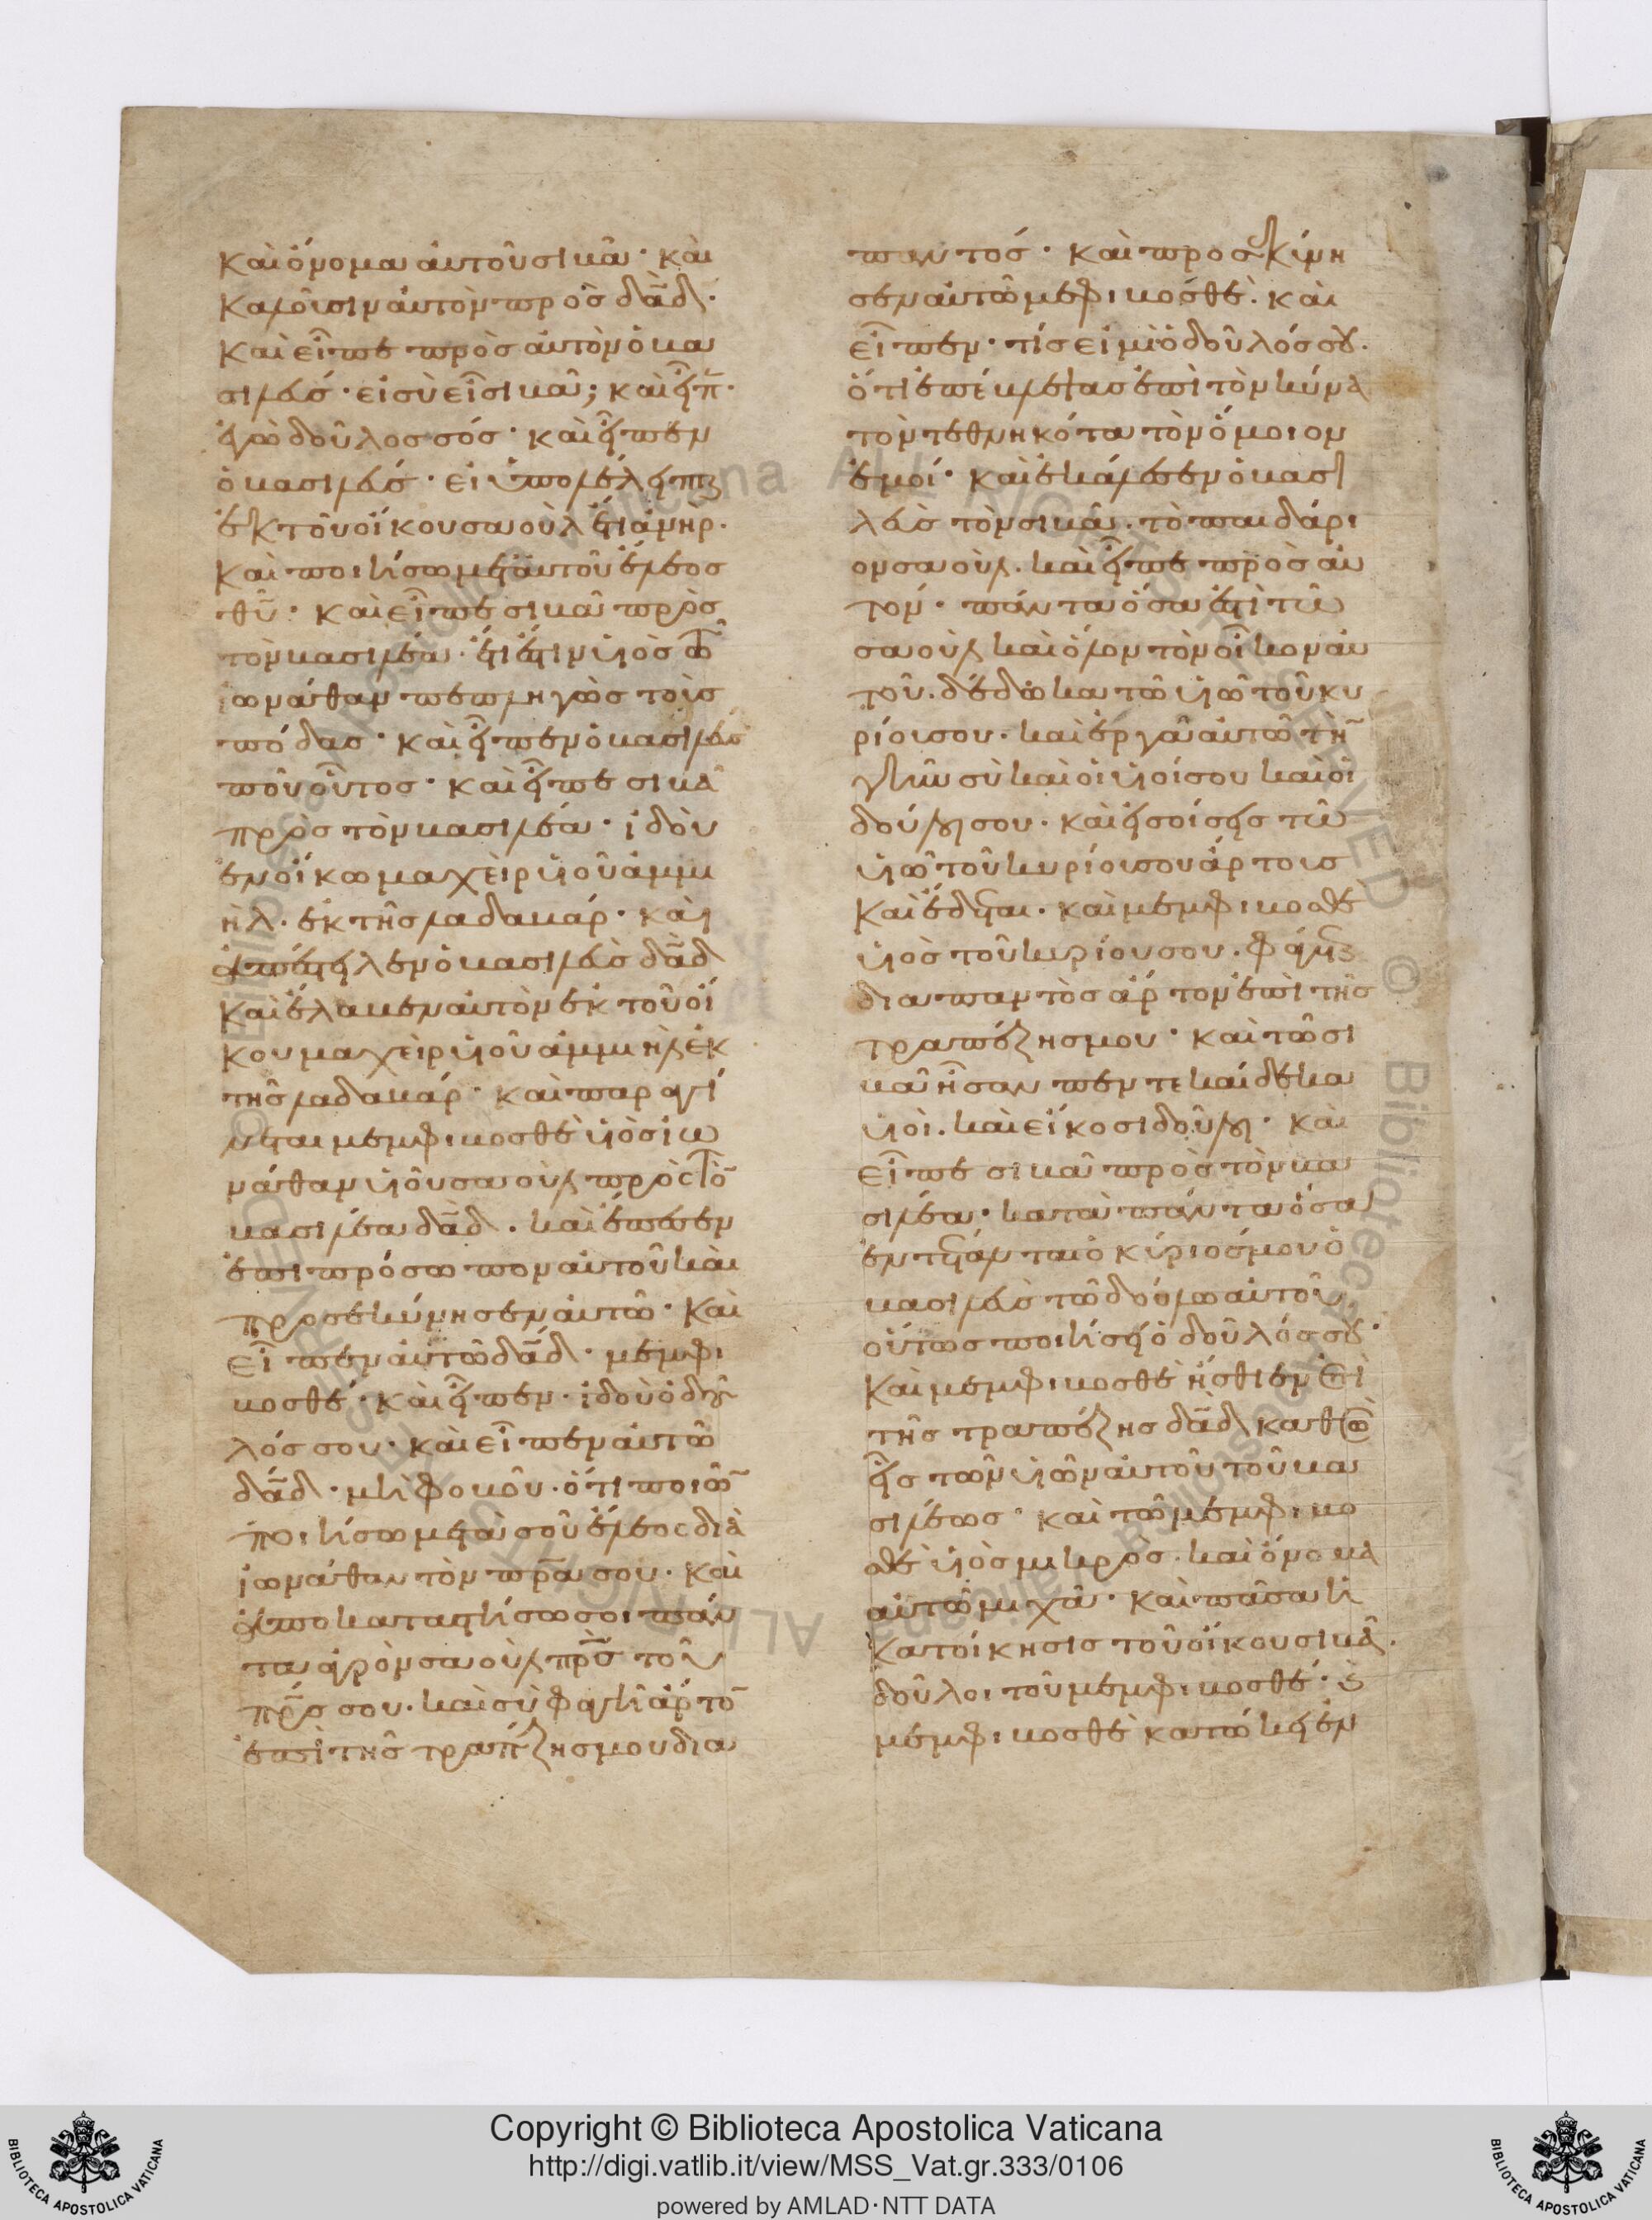 καὶ ὄνομα αὐτοῦ σιβᾶ· καὶ
καλοῦσιν αὐτὸν πρὸς δᾱδ·
καὶ εἶπε πρὸς αὐτὸν ὁ βα
σιλεύς· εἰ σὺ εἶ σιβᾶ; καὶ εἶπ̄·
ἐγὼ δοῦλος σός· καὶ εἶπεν
ὁ βασιλεύς· εἰ ὑπολέλειπται
ἐκ τοῦ οἴκου σαοὺλ ἔτι ἀνήρ·
καὶ ποιήσω μετ' αὐτοῦ ἔλεος
θῡ· καὶ εἶπε σιβᾶ πρὸς
τὸν βασιλέα· ἔτι ἐστιν υἱὸς τῶ
ἰωνάθαν πεπληγὼς τοὺς
πόδας· καὶ εἶπεν ὁ βασιλεύς
ποῦ οὗτος· καὶ εἶπε σιβᾶ
πρὸς τὸν βασιλέα· ἰδοὺ
ἐν οἴκω μαχεὶρ υἱοῦ ἀμμι
ὴλ· ἐκ τῆς λαδαβάρ· καὶ
ἀπέστειλεν ὁ βασιλεὺς δᾱδ
καὶ ἔλαβεν αὐτὸν ἐκ τοῦ οἴ
κου μαχεὶρ υἱοῦ ἀμμιὴλ ἐκ
τῆς λαδαβάρ· καὶ παραγί
νεται μεμφιβοσθὲ υἱὸς ἰω
νάθαν υἱοῦ σαοὺλ πρὸς τὸ̄
βασιλέα δᾱδ· καὶ ἔπεσεν
ἐπι πρόσωπον αὐτοῦ καὶ
προσεκύνησεν αὐτῶ· καὶ
εἶπεν αὐτῶ δᾱδ· μεμφι
βοσθέ· καὶ εἶπεν· ἰδοὺ ὁ δοῦ
λός σου· καὶ εἶπεν αὐτῶ
δᾱδ· μὴ φοβοῦ· ὅτι ποιῶ̄
ποιήσω μετὰ σοῦ ἔλεος διὰ
ἰωνάθαν τὸν πρ̄α σου· καὶ
ἀποκαταστήσω σοι πάν
τα ἀγρὸν σαοὺλ πρ̄ς τοῦ
πρ̄ς σου· καὶ σὺ φαγῆ ἄρτο̄
ἐπὶ τῆς τραπέζης μου δια
παντός· καὶ προσεκύνη
σεν αὐτῶ μεμφιβοσθὲ· καὶ
εἶπεν· τίς εἰμὶ ὁ δοῦλός σου·
ὅτι ἐπέβλεψας ἐπὶ τὸν κύνα
τὸν τεθνηκότα τὸν ὅμοιον
ἐμοί· καὶ ἐκάλεσεν ὁ βασι
λεὺς τὸν σιβᾶ· τὸ παιδάρι
ον σαοὺλ· καὶ εἶπε πρὸς αὐ
τόν· πάντα ὅσα ἐστὶ τῶ
σαοὺλ καὶ ὅλον τὸν οἶκον αὐ
τοῦ· δέδωκα τῶ υἱῶ τοῦ κυ
ρίου σου· καὶ ἐργᾶ αὐτῶ τὴ̄
γῆν σὺ καὶ οἱ υἱοί σου καὶ οἱ
δοῦλοι σου· καὶ εἰσοίσεις τῶ
υἱῶ τοῦ κυρίου σου ἄρτους
καὶ ἔδεται· καὶ μεμφιβοσθὲ
υἱὸς τοῦ κυρίου σου· φάγεται
διαπαντὸς ἄρτον ἐπὶ τῆς
τραπέζης μου· καὶ τῶ σι
βᾶ ἦσαν πεντεκαίδεκα
υἱοὶ· καὶ εἴκοσι δοῦλοι· καὶ
εἶπε σιβᾶ πρὸς τὸν βα
σιλέα· κατὰ πάντα ὅσα
ἐντέταλται ὁ κύριός μου ὁ
βασιλεὺς τῶ δούλω αὐτοῦ
οὕτως ποιήσει ὁ δοῦλός σου·
καὶ μεμφιβοσθὲ ἤσθιεν ἐπὶ
τῆς τραπέζης δᾱδ καθὼς
εἷς τῶν υἱῶν αὐτοῦ τοῦ βα
σιλέως· καὶ τῶ μεμφιβο
σθὲ υἱὸς μικρὸς· καὶ ὄνομα
αὐτῶ μιχᾶ· καὶ πᾶσα ἡ
κατοίκησις τοῦ οἴκου σιβᾶ·
δοῦλοι τοῦ μεμφιβοσθέ· ϗ
μεμφιβοσθὲ κατώκει ἐν